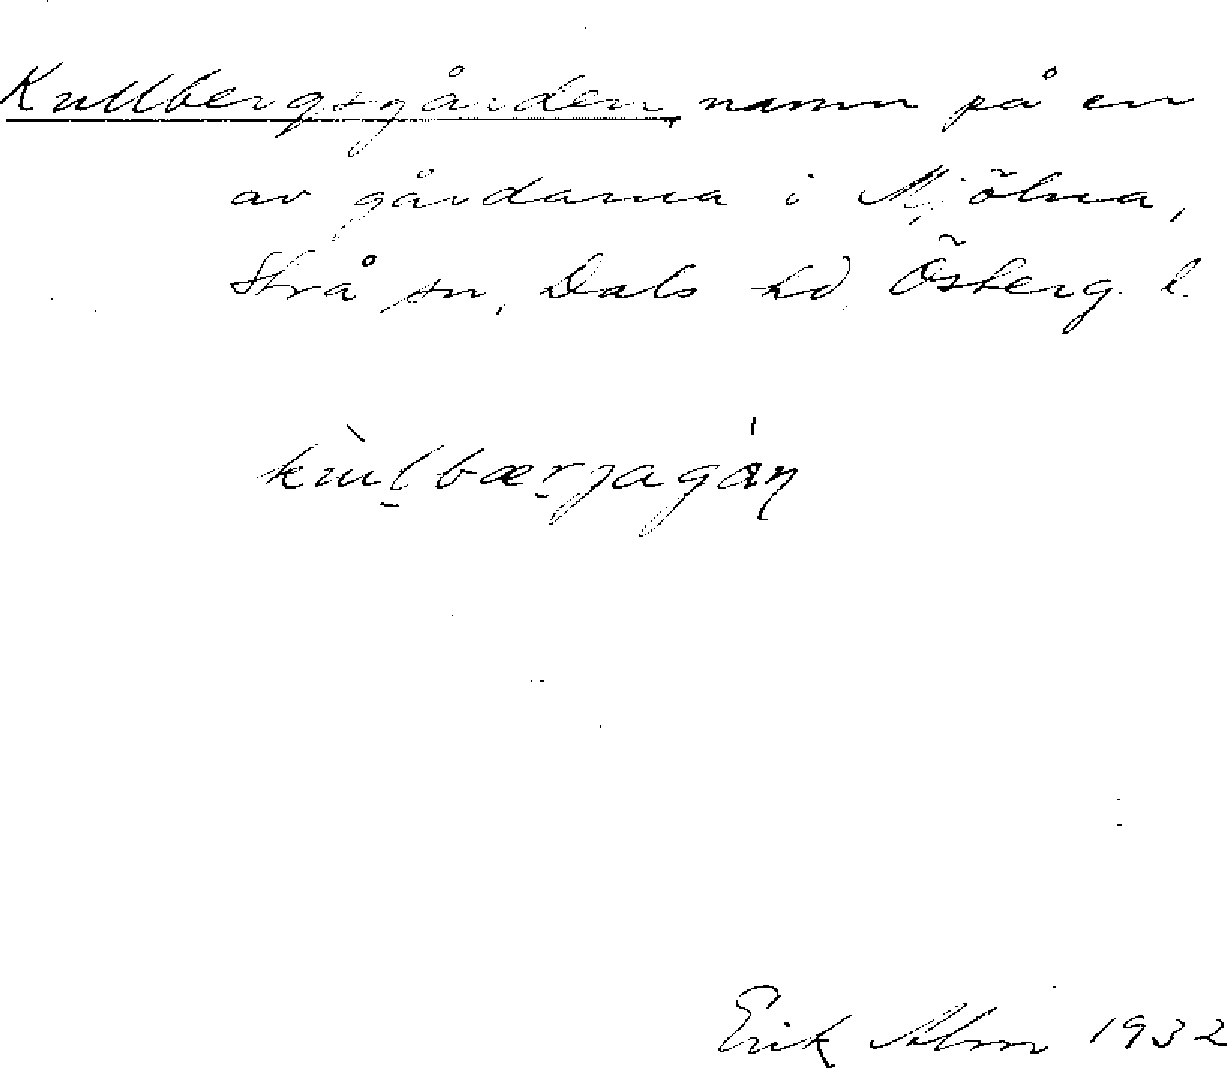 Kullbergsgården, namn på en
av gårdarna i Mjölna,
Strå sn, Dals hd, Österg. l.
Erik Alm 1932